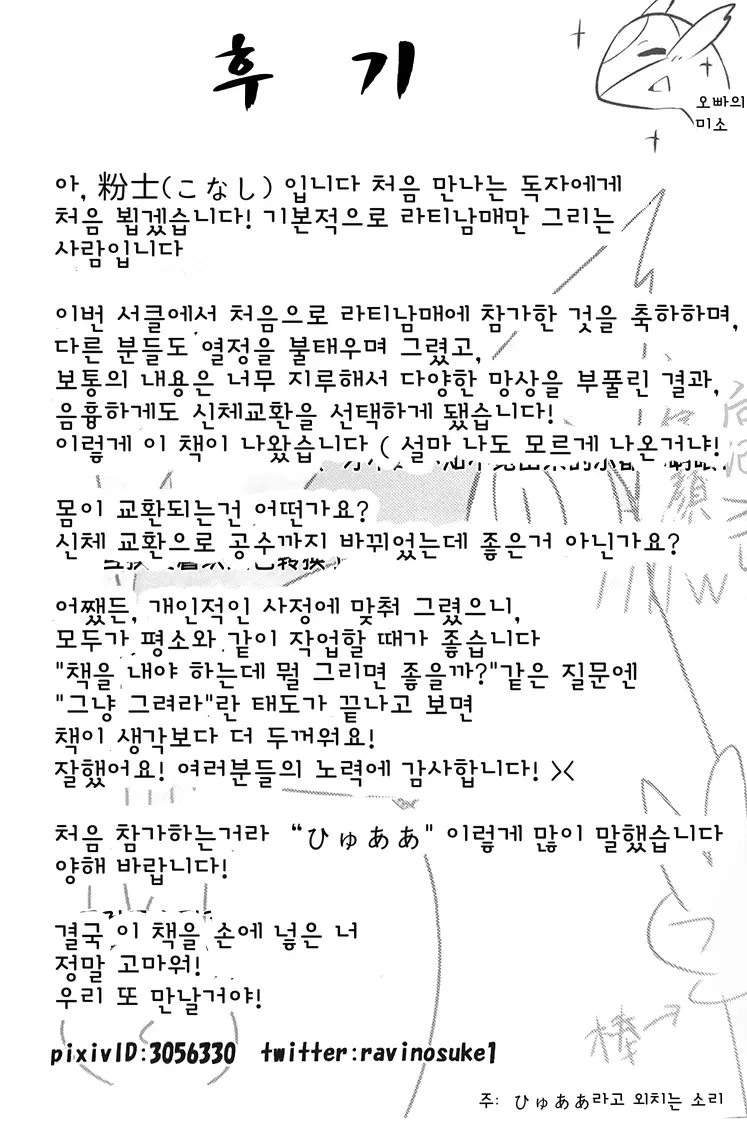 후 기
오빠의
미소
아, 粉士(こなし) 입니다 처음 만나는 독자에게
처음 뵙겠습니다! 기본적으로 라티남매만 그리는
사람입니다
이번 서클에서 처음으로 라티남매에 참가한 것을 축하하며,
다른 분들도 열정을 불태우며 그렸고,
보통의 내용은 너무 지루해서 다양한 망상을 부풀린 결과,
음흉하게도 신체교환을 선택하게 됐습니다!
이렇게 이 책이 나왔습니다 ( 설마 나도 모르게 나온거냐!
몸이 교환되는건 어떤가요?
신체 교환으로 공수까지 바뀌었는데 좋은거 아닌가요?
어쨌든, 개인적인 사정에 맞춰 그렸으니,
모두가 평소와 같이 작업할 때가 좋습니다
"책을 내야 하는데 뭘 그리면 좋을까?"같은 질문엔
"그냥 그려라"란 태도가 끝나고 보면
책이 생각보다 더 두꺼워요!
잘했어요! 여러분들의 노력에 감사합니다! ><
처음 참가하는거라 “ひゅああ" 이렇게 많이 말했습니다
양해 바랍니다!
결국 이 책을 손에 넣은 너
정말 고마워!
우리 또 만날거야!
棒
pixivID:3056330 twitter:ravinosuke1
주: ひゅああ라고 외치는 소리